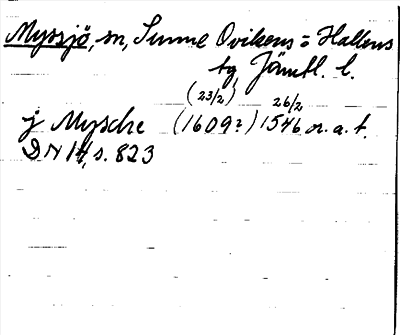 Myssjö, sn, Sunne Ovikens o Hallens
tg, Jämtl. l.
(23/2) 26/2
j Mysche (1609?) 1546 or. a. t.
DN 14, s. 823